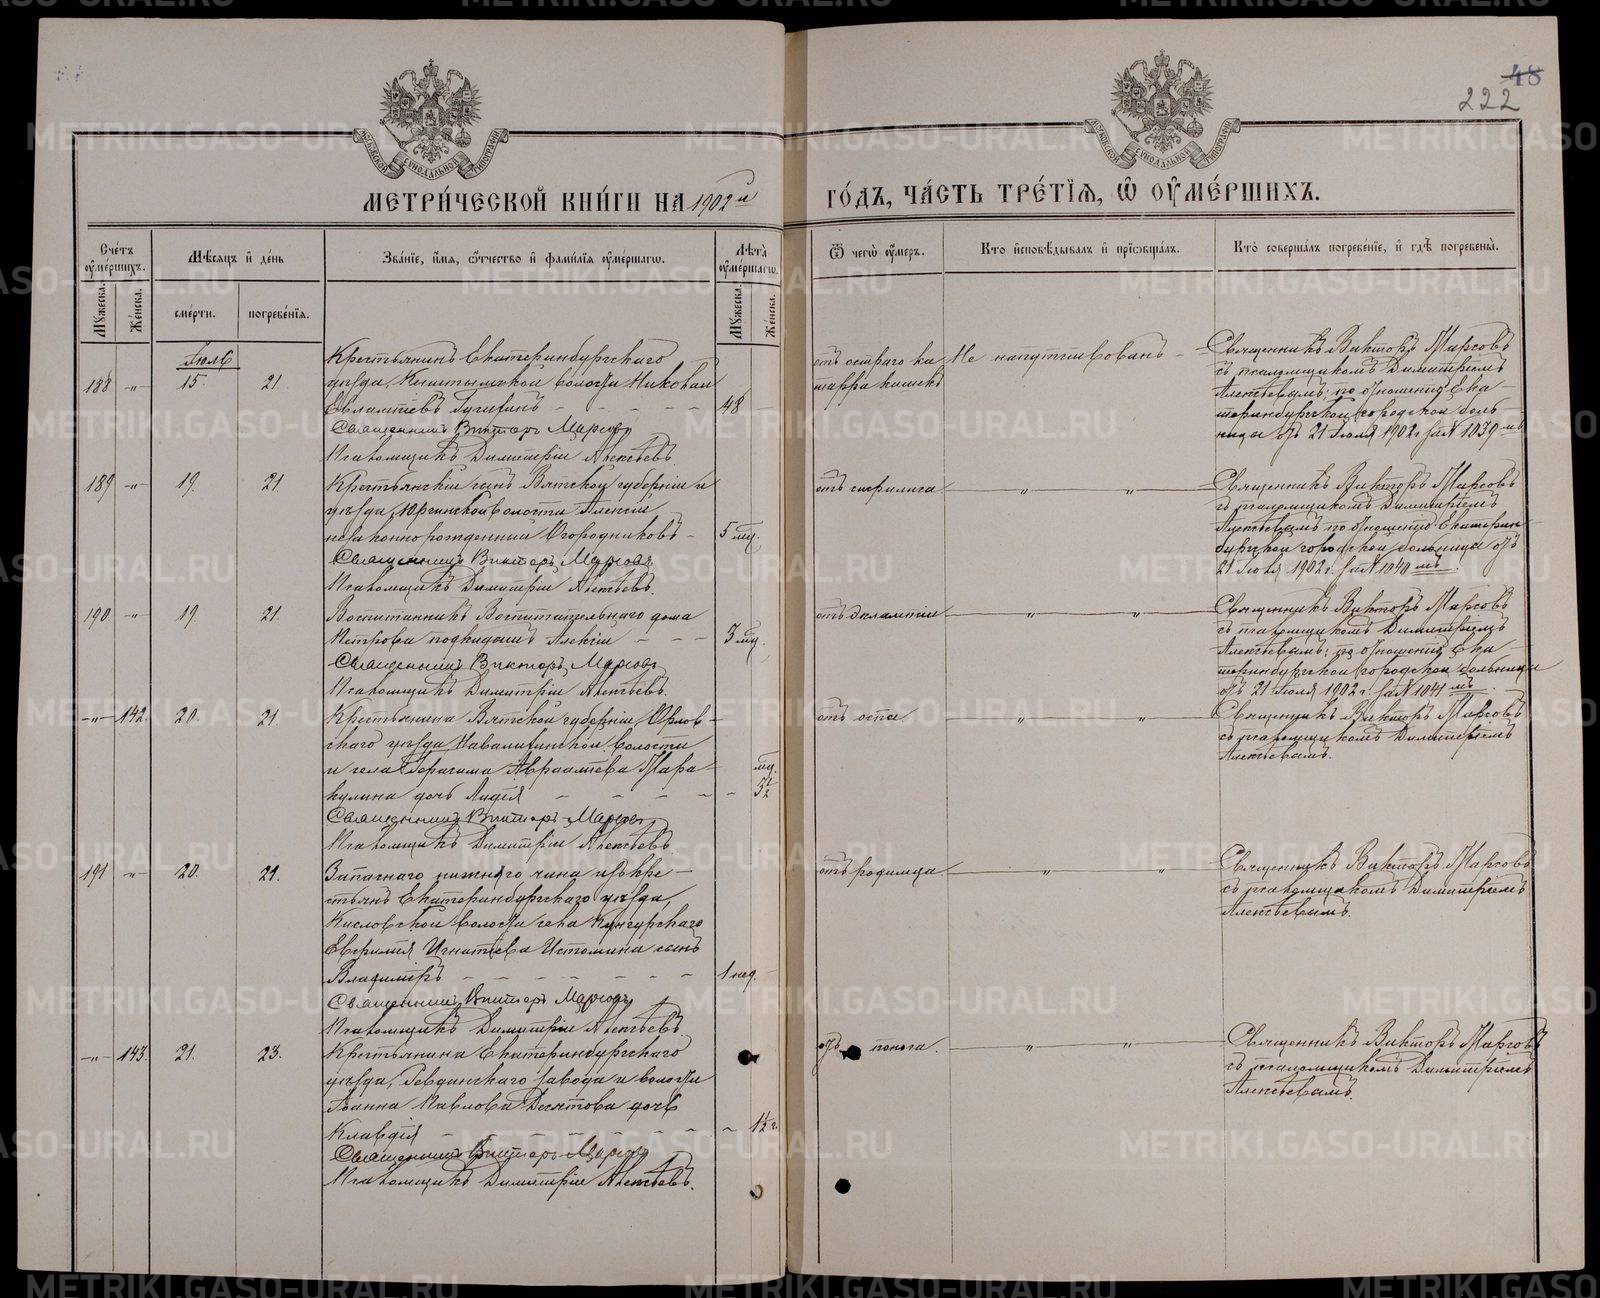 48
222
МОСКОВСКОЙ СѴНОДАЛЬНОЙ ТИПОГРАФІИ
МОСКОВСКОЙ СѴНОДАЛЬНОЙ ТИПОГРАФІИ
МЕТРИ́ЧЕСКОЙ КНИ́ГИ НА 1902 й
ГО́ДЪ, ЧА́СТЬ ТРЕ́ТІѦ, Ѡ ОУМЕ́РШИХЪ.
Сче́тъ оуме́ршихъ.
Мѣ́сѧцъ и҆ де́нь
Зва́нїе, и҆́мѧ, ѻ҆́тчество и҆ фамилїѧ оуме́ршагѡ.
Лѣ́та оуме́ршагѡ.
Мꙋ́жеска.
Же́нска.
сме́рти.
погребе́нїѧ.
Мꙋ́жеска.
Же́нска.
Ѿ чегѡ̀ оу́меръ.
Кто̀ и҆сповѣ́дывалъ и҆ прїѡбща́лъ.
Кто̀ соверша́лъ погребе́нїе, и҆ гдѣ̀ погребены̀.
Іюль
188 -"- 15. 21.
Крестьянинъ Екатеринбургскаго
уѣзда, волости Николай
Евлампіевъ 48
Священникъ Викторъ Марсовъ
Псаломщикъ Димитрій Алексѣевъ.
отъ остраго ка-
тарра кишекъ
Не напутствованъ
Священникъ Викторъ Марсовъ
съ псаломщикомъ Димитріемъ
Алексѣевымъ; по отношенію Ека-
теринбургской городской боль-
ницы отъ 21 Іюля 1902 г. за N 1039 мъ
189 -"- 19. 21.
Крестьянскій сынъ Вятской губерніи и
уѣзда, волости Алексій
незаконнорожденный Огородниковъ - 5 мц.
Священникъ Викторъ Марсовъ
Псаломщикъ Димитрій Алексѣевъ.
отъ сифилиса " "
Священникъ Викторъ Марсовъ
съ псаломщикомъ Димитріемъ
Алексѣевымъ по отношенію Екатерин-
бургской городской больницы отъ
21 Іюля 1902 г. за N 1040 мъ.
190 -"- 19. 21.
Воспитанникъ Воспитательнаго дома
Петрова подкидышъ Алексій - - - 3 мц.
Священникъ Викторъ Марсовъ
Псаломщикъ Димитрій Алексѣевъ.
отъ эклампсіи " "
Священникъ Викторъ Марсовъ
съ псаломщикомъ Димитріемъ
Алексѣевымъ; по отношенію Ека-
теринбургской городской больницы
отъ 21 Іюля 1902 г. за N 1041 мъ
-"- 142. 20. 21.
Крестьянина Вятской губерніи, Орлов-
скаго уѣзда, волости
и села Герасима Авраамiева Мара-
кулина дочь Лидія - мц. 5½
Священникъ Викторъ Марсовъ
Псаломщикъ Димитрій Алексѣевъ
отъ оспы " "
Священникъ Викторъ Марсовъ
съ псаломщикомъ Димитріемъ
Алексѣевымъ.
191 -"- 20. 21.
Запаснаго нижняго чина изъ кре-
стьянъ Екатеринбургскаго уѣзда,
Кисловской волости села Кунгурскаго
Евфимія Игнатіева Истомина сынъ
Владиміръ - 1 нед.
Священникъ Викторъ Марсовъ
Псаломщикъ Димитрій Алексѣевъ
отъ родимца " "
Священникъ Викторъ Марсовъ
съ псаломщикомъ Димитріемъ
Алексѣевымъ.
-"- 143. 21. 23.
Крестьянина Екатеринбургскаго
уѣзда, Ревдинскаго завода и волости
Іоанна Павлова Десятова дочь
Клавдія - 1½ г.
Священникъ Викторъ Марсовъ
Псаломщикъ Димитрій Алексѣевъ.
отъ поноса. " "
Священникъ Викторъ Марсовъ
съ псаломщикомъ Димитріемъ
Алексѣевымъ.
METRIKI.GASO-URAL.RU